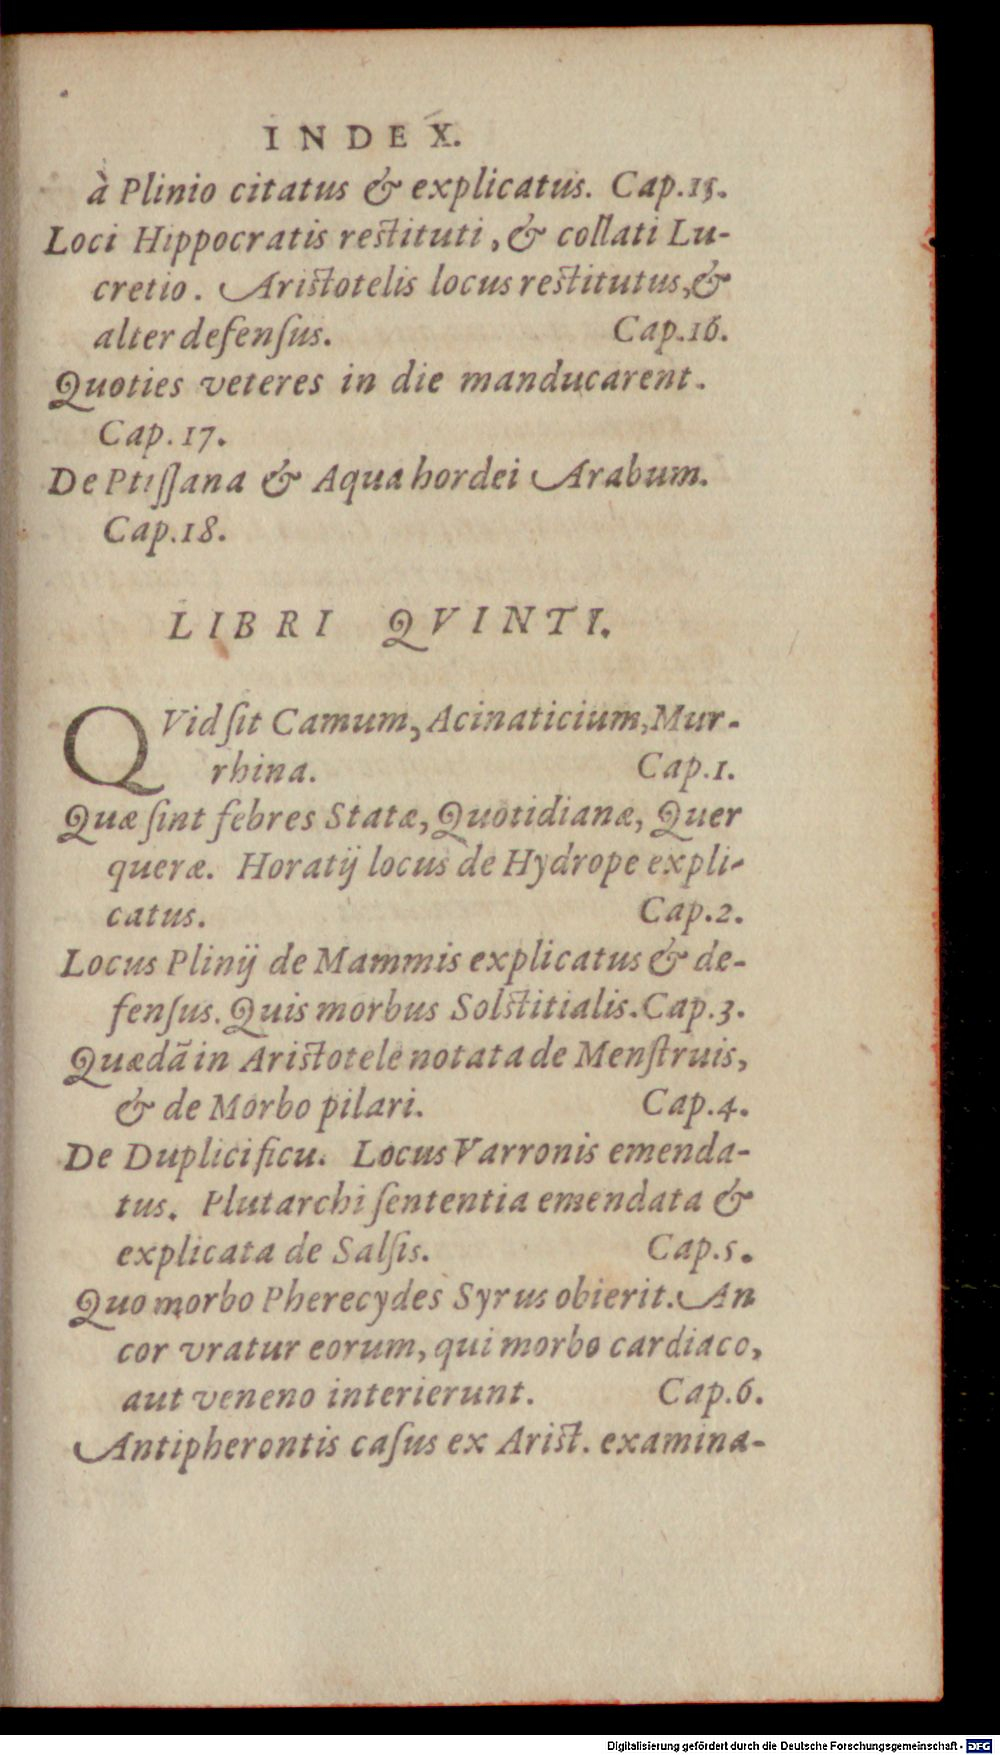 INDEX.
à Plinio citatus & explicatus. Cap.15.
Loci Hippocratis restituti, & collati Lu-
cretio. Aristotelis locus restitutus, &
alter defenſus. Cap.16.
Quoties veteres in die manducarent.
Cap. 17.
De Ptiſſana & Aqua hordei Arabum.
Cap.18.
LIBRI QVINTI.
QVid ſit Camum, Acinaticium, Mur-
rhina. Cap.1.
Quæ ſint febres Statæ, Quotidianæ, Quer
queræ. Horatij locus de Hydrope expli-
catus. Cap.2.
Locus Plinij de Mammis explicatus & de-
fenſus. Quis morbus Solstitialis. Cap.3.
Quædã in Aristotele notata de Menſtruis,
& de Morbo pilari. Cap.4.
De Duplici ficu. Locus Varronis emenda-
tus. Plutarchi ſententia emendata &
explicata de Salſis. Cap.5.
Quo morbo Pherecydes Syrus obierit. An
cor vratur eorum, qui morbo cardiaco,
aut veneno interierunt. Cap.6.
Antipherontis caſus ex Arist. examina-
Digitalisierung gefördert durch die Deutsche Forschungsgemeinschaft - DFG